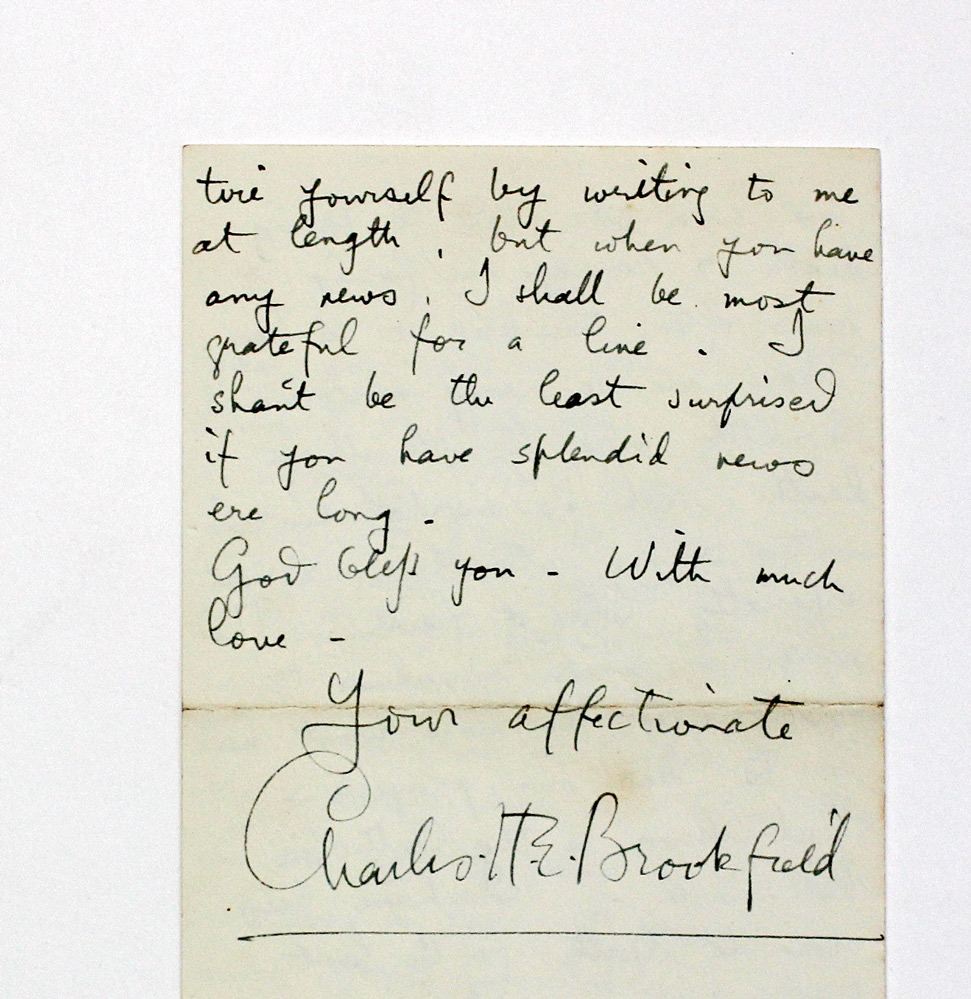 tire yourself by writing to me
at length, but when you have
any news, I shall be most
grateful for a line. I
shan't be the least surprised
if you have splendid news
ere long.
God bless you - With much
love -
Your affectionate
Charles. H. E. Brookfield